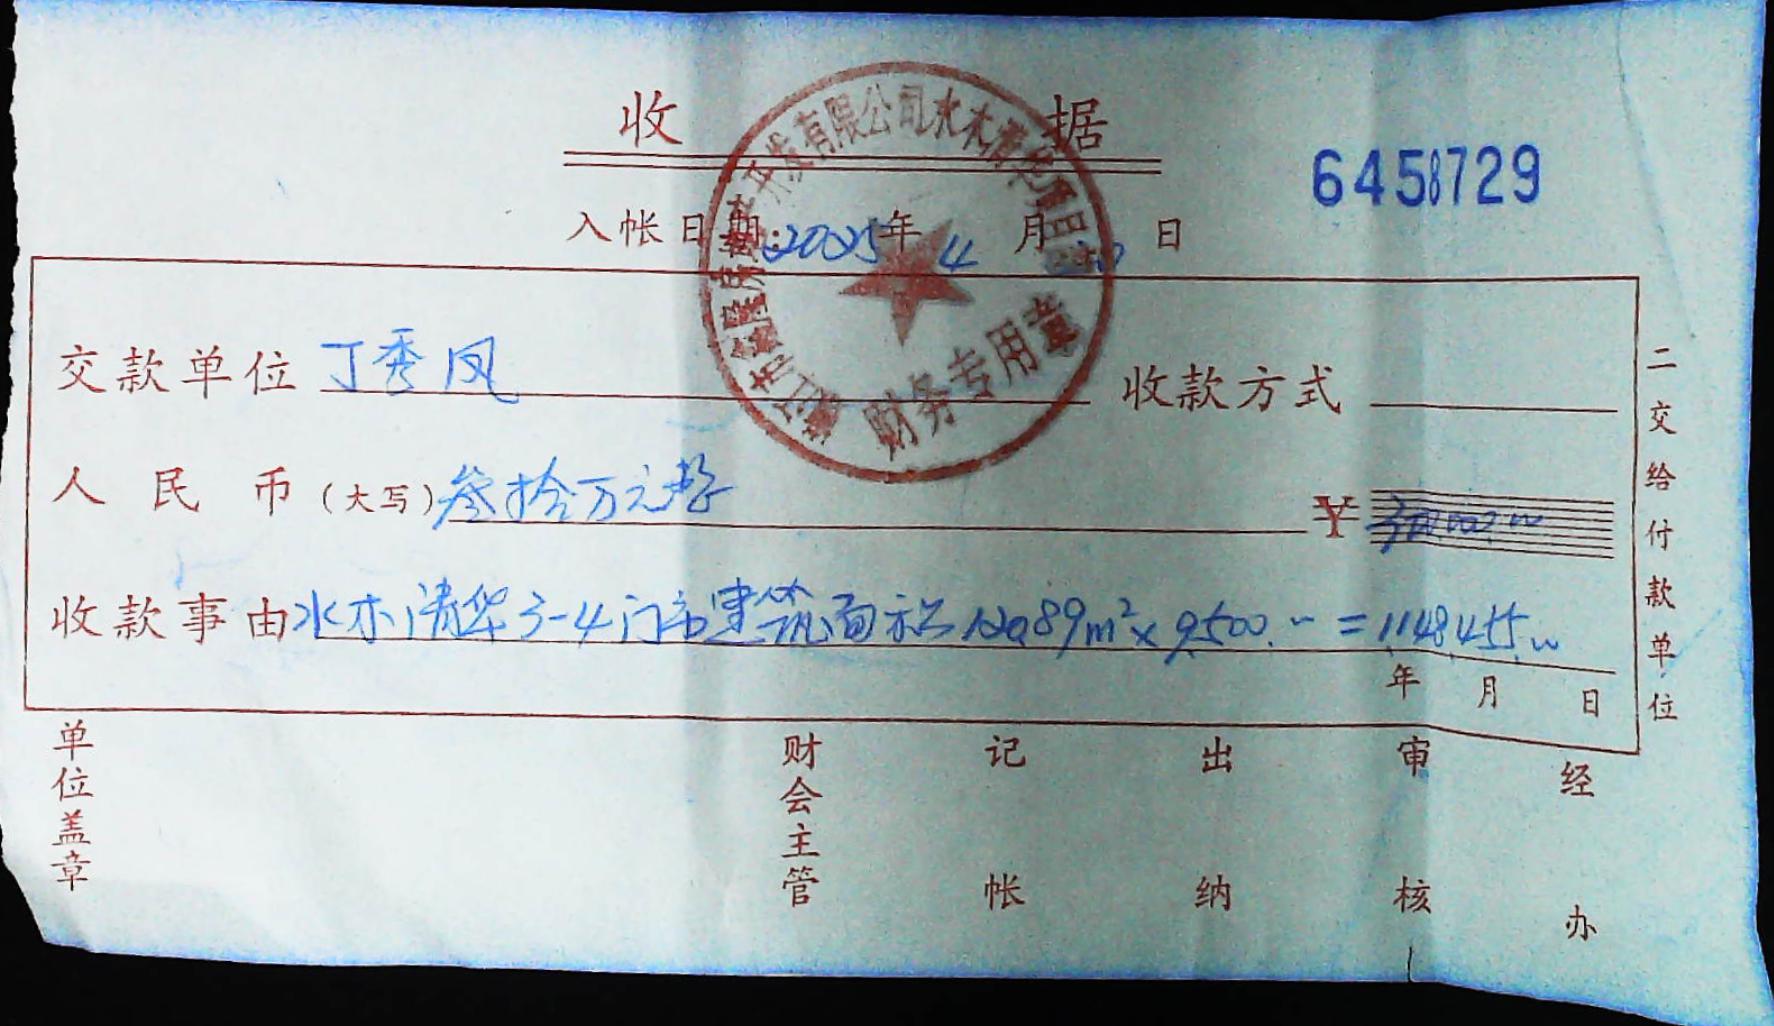 收 据
6458729
入帐日期:2025年4月30日
交款单位 丁秀凤 收款方式
人民币(大写)叁拾万元整 ¥300000.00
收款事由 水木清华3-4门市建筑面积120.89m²×9500.00=1148455.00
年 月 日
二交给付款单位
单位盖章 财会主管 记帐 出纳 审核 经办
开发有限公司水木清华项目部
财务专用章